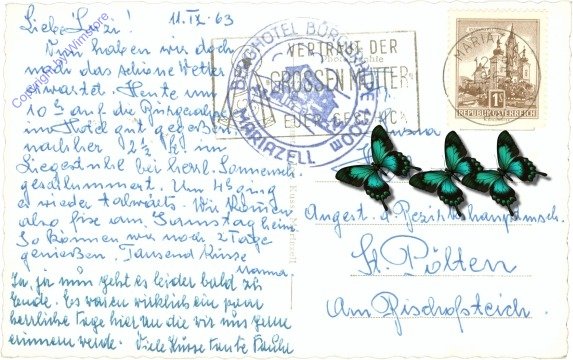 Liebe Susi! 11.IX.63
Nun haben wir doch
noch das schöne Wetter
erwartet. Heute um
10 h auf die Bürgeralpe
im Hotel gut gegessen
nachher 2 1/2 h im
Liegestuhl bei herrl. Sonnenschein
geschlummert. Um 4 h ging
es wieder talwärts. Wir kommen
also erst am Samstag heim.
So können wir noch 2 Tage
genießen. Tausend Küsse
Mamma.
Ja, ja nun geht es leider bald zu
Ende. Es waren wirklich ein paar
herrliche Tage hier an die wir uns gerne
erinnern werden. Viele Küsse Tante
BERGHOTEL BÜRGERALPE
MARIAZELL
VERTRAUT DER
GROSSEN MUTTER
EUER GESCHICK
MARIAZELL
1 S
REPUBLIK ÖSTERREICH
Angest. d. Bezirkshauptmannsch.
St. Pölten
Am Bischofsteich.
Copyright by Wimstore